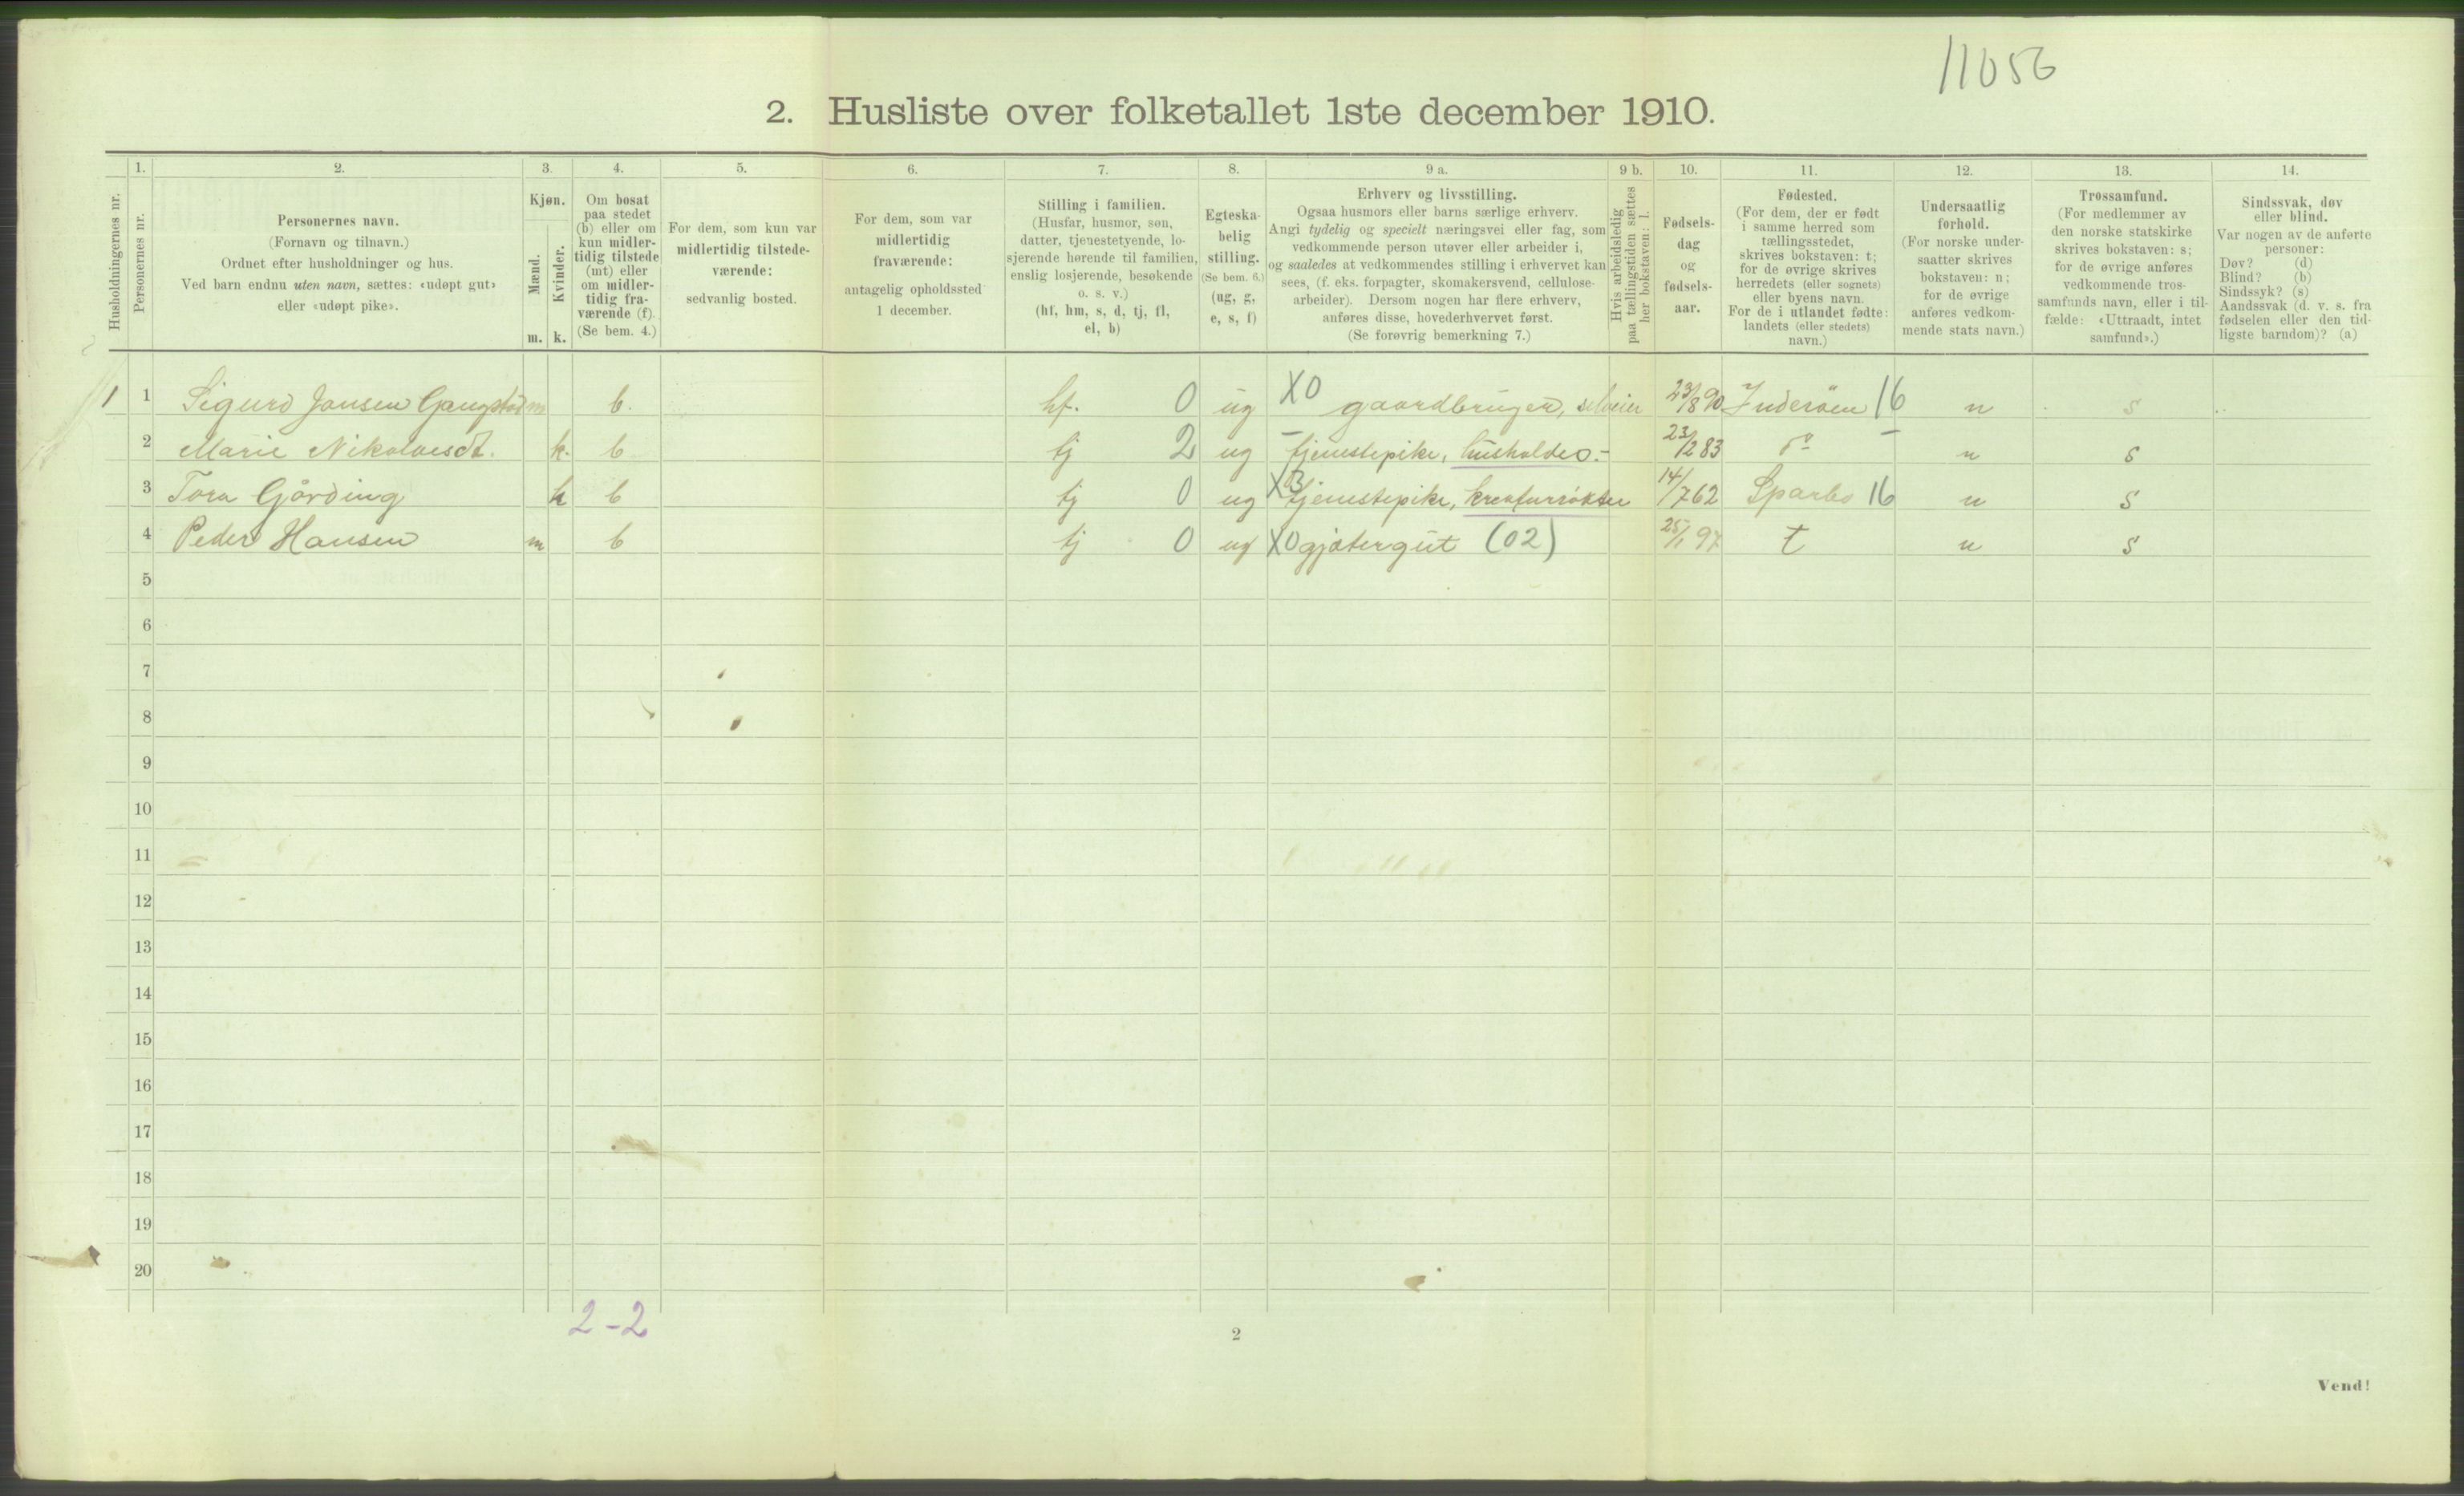 11056
2. Husliste over folketallet 1ste december 1910.
Husholdningernes nr.
1.
Personernes nr.
2.
Personernes navn.
(Fornavn og tilnavn.)
Ordnet efter husholdninger og hus.
Ved barn endnu uten navn, sættes: «udøpt gut»
eller «udøpt pike».
3.
Kjøn.
Mænd.
Kvinder.
m. k.
4.
Om bosat
paa stedet
(b) eller om
kun midler-
tidig tilstede
(mt) eller
om midler-
tidig fra-
værende (f).
(Se bem. 4.)
5.
For dem, som kun var
midlertidig tilstede-
værende:
sedvanlig bosted.
6.
For dem, som var
midlertidig
fraværende:
antagelig opholdssted
1 december.
7.
Stilling i familien.
(Husfar, husmor, søn,
datter, tjenestetyende, lo-
sjerende hørende til familien,
enslig losjerende, besøkende
o. s. v.)
(hf, hm, s, d, tj, fl,
el, b)
8.
Egteska-
belig
stilling.
(Se bem. 6.)
(ug, g,
e, s, f)
9 a.
Erhverv og livsstilling.
Ogsaa husmors eller barns særlige erhverv.
Angi tydelig og specielt næringsvei eller fag, som
vedkommende person utøver eller arbeider i,
og saaledes at vedkommendes stilling i erhvervet kan
sees, (f. eks. forpagter, skomakersvend, cellulose-
arbeider). Dersom nogen har flere erhverv,
anføres disse, hovederhvervet først.
(Se forøvrig bemerkning 7.)
9 b.
Hvis arbeidsledig
paa tællingstiden sættes
her bokstaven: l.
10.
Fødsels-
dag
og
fødsels-
aar.
11.
Fødested.
(For dem, der er født
i samme herred som
tællingsstedet,
skrives bokstaven: t;
for de øvrige skrives
herredets (eller sognets)
eller byens navn.
For de i utlandet fødte:
landets (eller stedets)
navn.)
12.
Undersaatlig
forhold.
(For norske under-
saatter skrives
bokstaven: n;
for de øvrige
anføres vedkom-
mende stats navn.)
13.
Trossamfund.
(For medlemmer av
den norske statskirke
skrives bokstaven: s;
for de øvrige anføres
vedkommende tros-
samfunds navn, eller i til-
fælde: «Uttraadt, intet
samfund».)
14.
Sindssvak, døv
eller blind.
Var nogen av de anførte
personer:
Døv? (d)
Blind? (b)
Sindssyk? (s)
Aandssvak (d. v. s. fra
fødselen eller den tid-
ligste barndom)? (a)
1 1 Sigurd Jansen Gangstad m b. hf. 0 ug X0 gaardbruger, selveier 23/8 90 Inderøen 16 n s
2 Marie Nikolaisdt. k. b tj 2 ug - tjenestepike, husholder.- 23/2 83 do - n s
3 Tora Gårding k b tj 0 ug X3 tjenestepike, kreaturrøkter 14/7 62 Sparbo 16 n s
4 Peder Hansen m b tj 0 ug X0 gjætergut (02) 25/1 97 t n s
5
6
7
8
9
10
11
12
13
14
15
16
17
18
19
20
2-2
2
Vend!